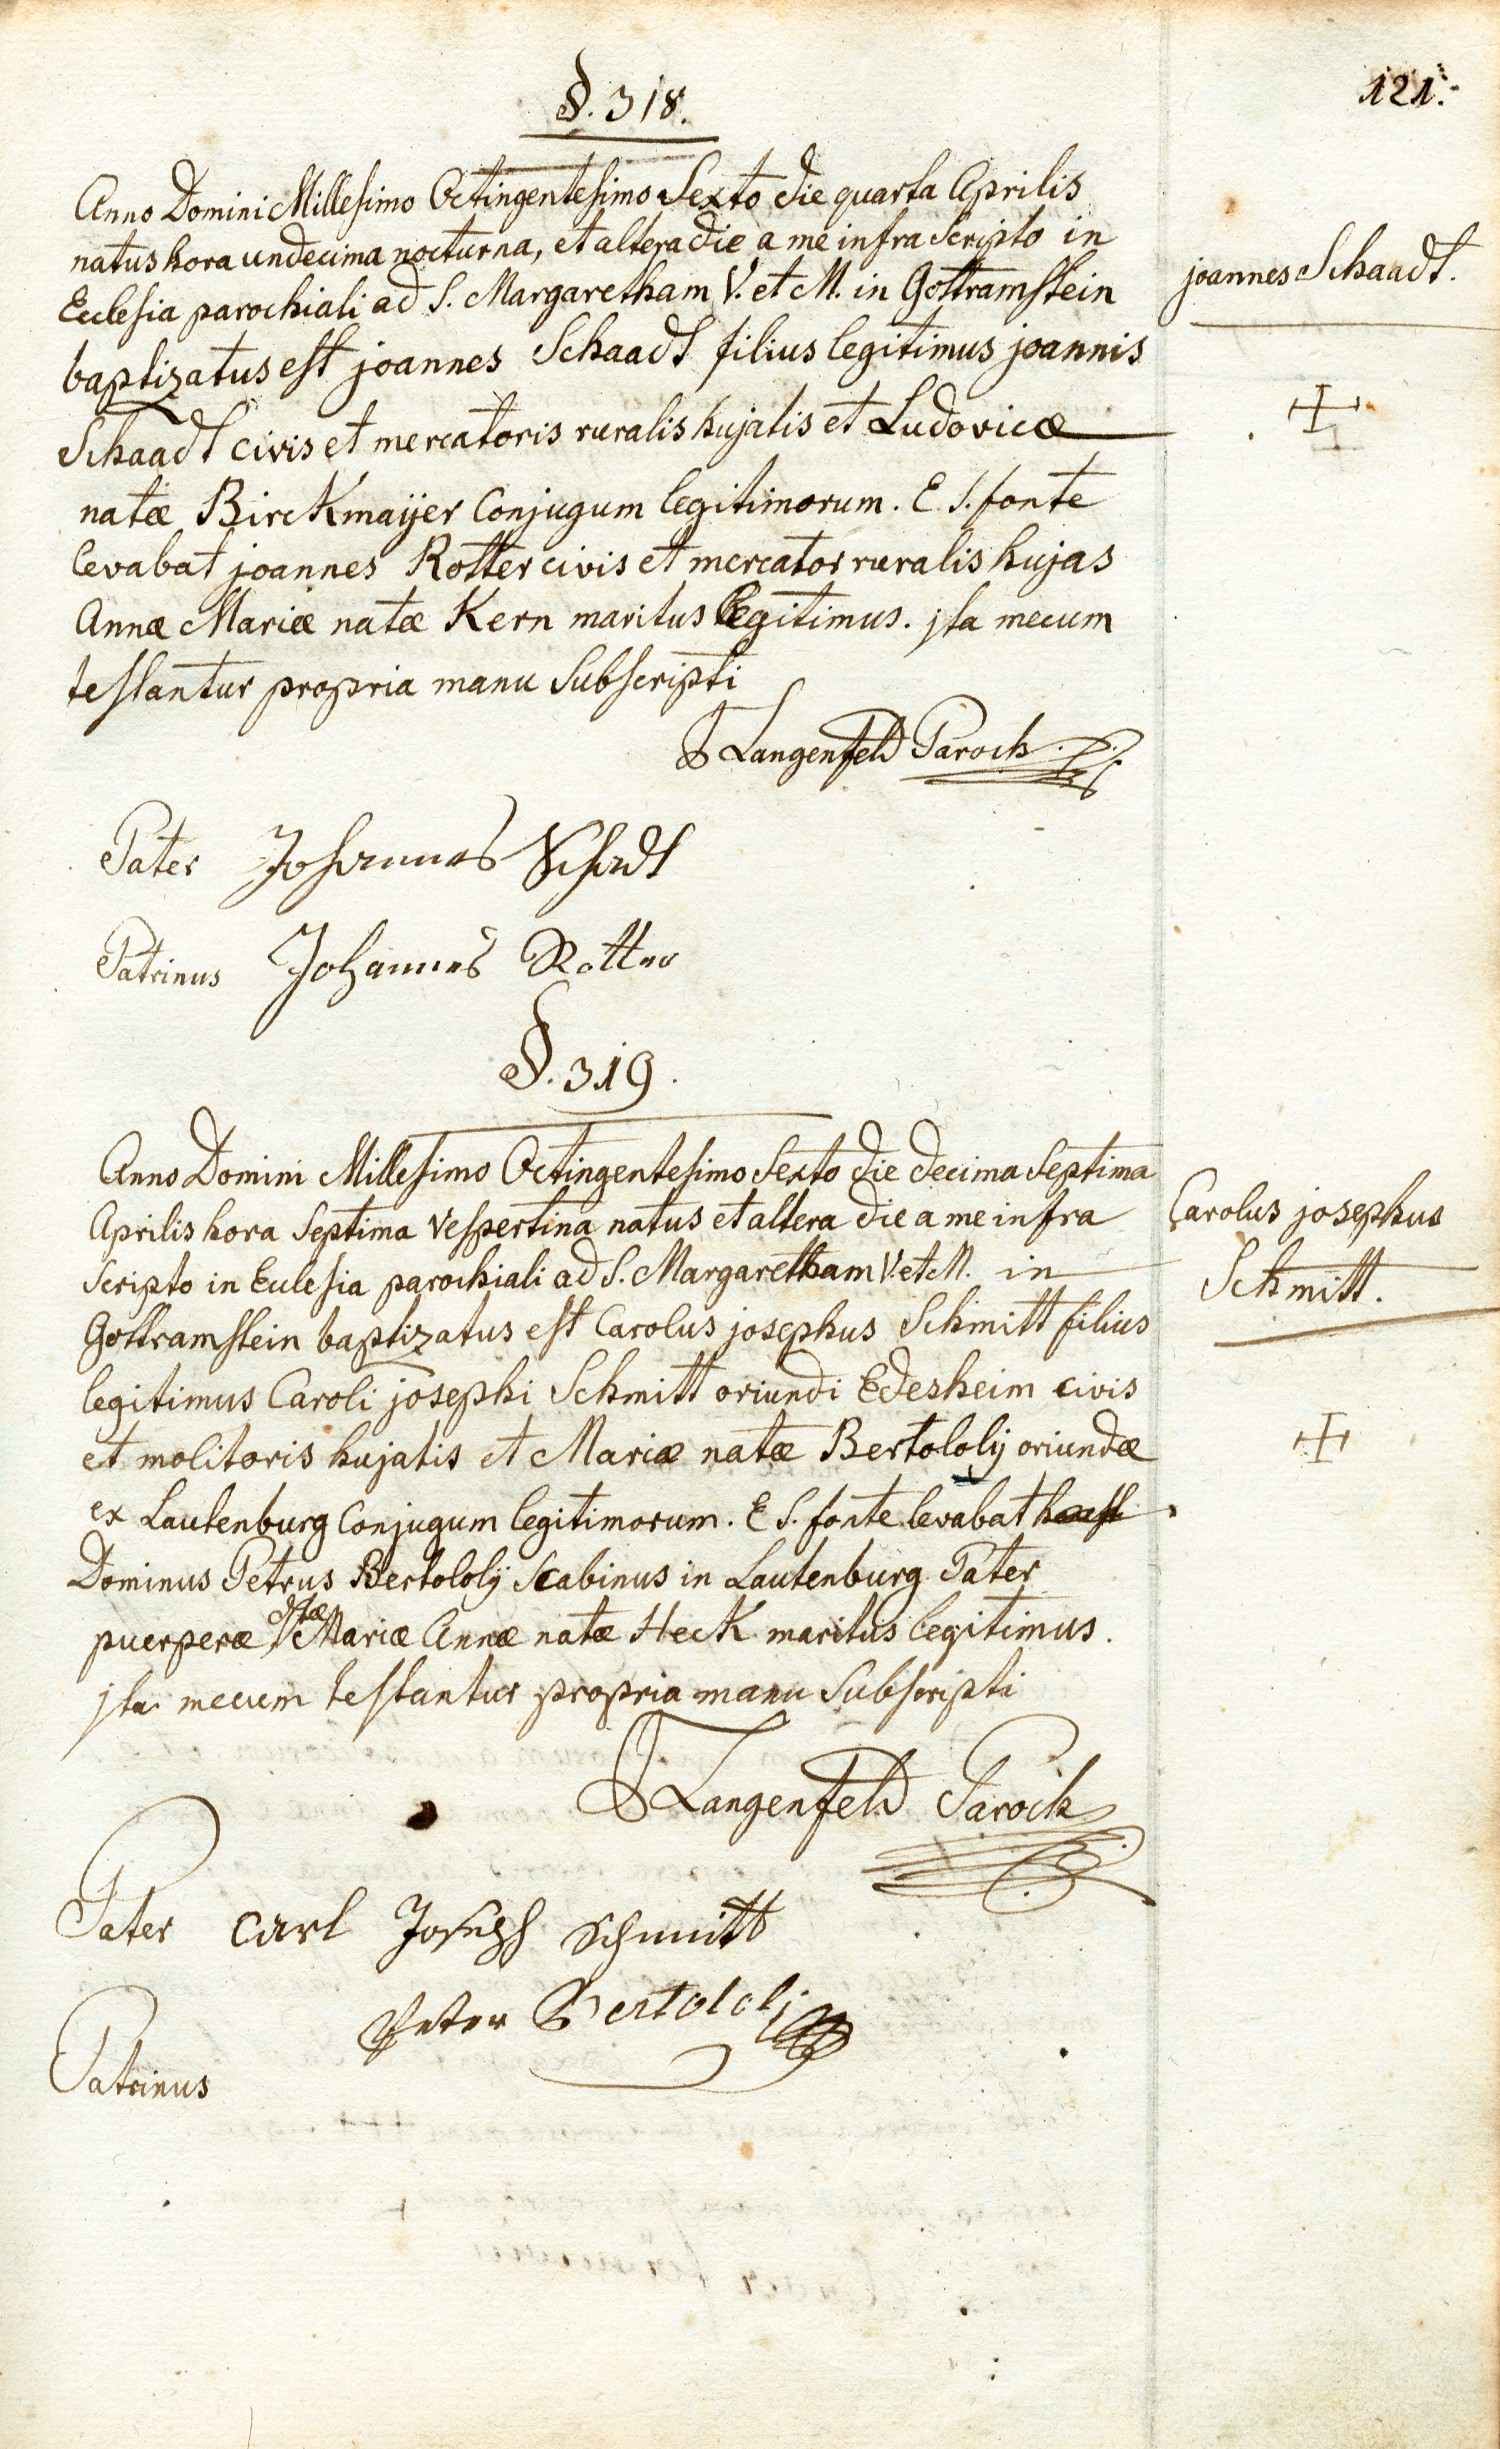 121.
§. 318.
Anno Domini Millesimo Octingentesimo Sexto die quarta Aprilis
natus hora undecima nocturna, et altera die a me infra Scripto in
Ecclesia parochiali ad S. Margaretham V. et M. in Gottramstein
baptizatus est joannes Schaadt filius legitimus joannis
Schaadt civis et mercatoris ruralis hujatis et Ludovicæ
natæ Birckmaÿer Conjugum legitimorum. E S. fonte
levabat joannes Rotter civis et mercator ruralis hujas
Annæ Mariæ natæ Kern maritus legitimus. jta mecum
testantur propria manu Subscripti
Langenfeld Paroch.
Pater Johannes Schadt
Patrinus Johannes Rotter
joannes Schaadt.
§. 319.
Anno Domini Millesimo Octingentesimo Sexto die decima Septima
Aprilis hora Septima Vespertina natus et altera die a me infra
Scripto in Ecclesia parochiali ad S. Margaretham V. et M. in
Gottramstein baptizatus est Carolus josephus Schmitt filius
legitimus Caroli josephi Schmitt oriundi Edesheim civis
et molitoris hujatis et Mariæ natæ Bertololÿ oriundæ
ex Lautenburg Conjugum legitimorum. E S. fonte levabat
Dominus Petrus Bertololÿ Scabinus in Lautenburg Pater
puerperæ Mariæ Annæ natæ Heck maritus legitimus.
jta mecum testantur propria manu Subscripti
Langenfeld Paroch
Pater Carl Joseph Schmitt
Peter Bertololi
Patrinus
Carolus josephus
Schmitt.